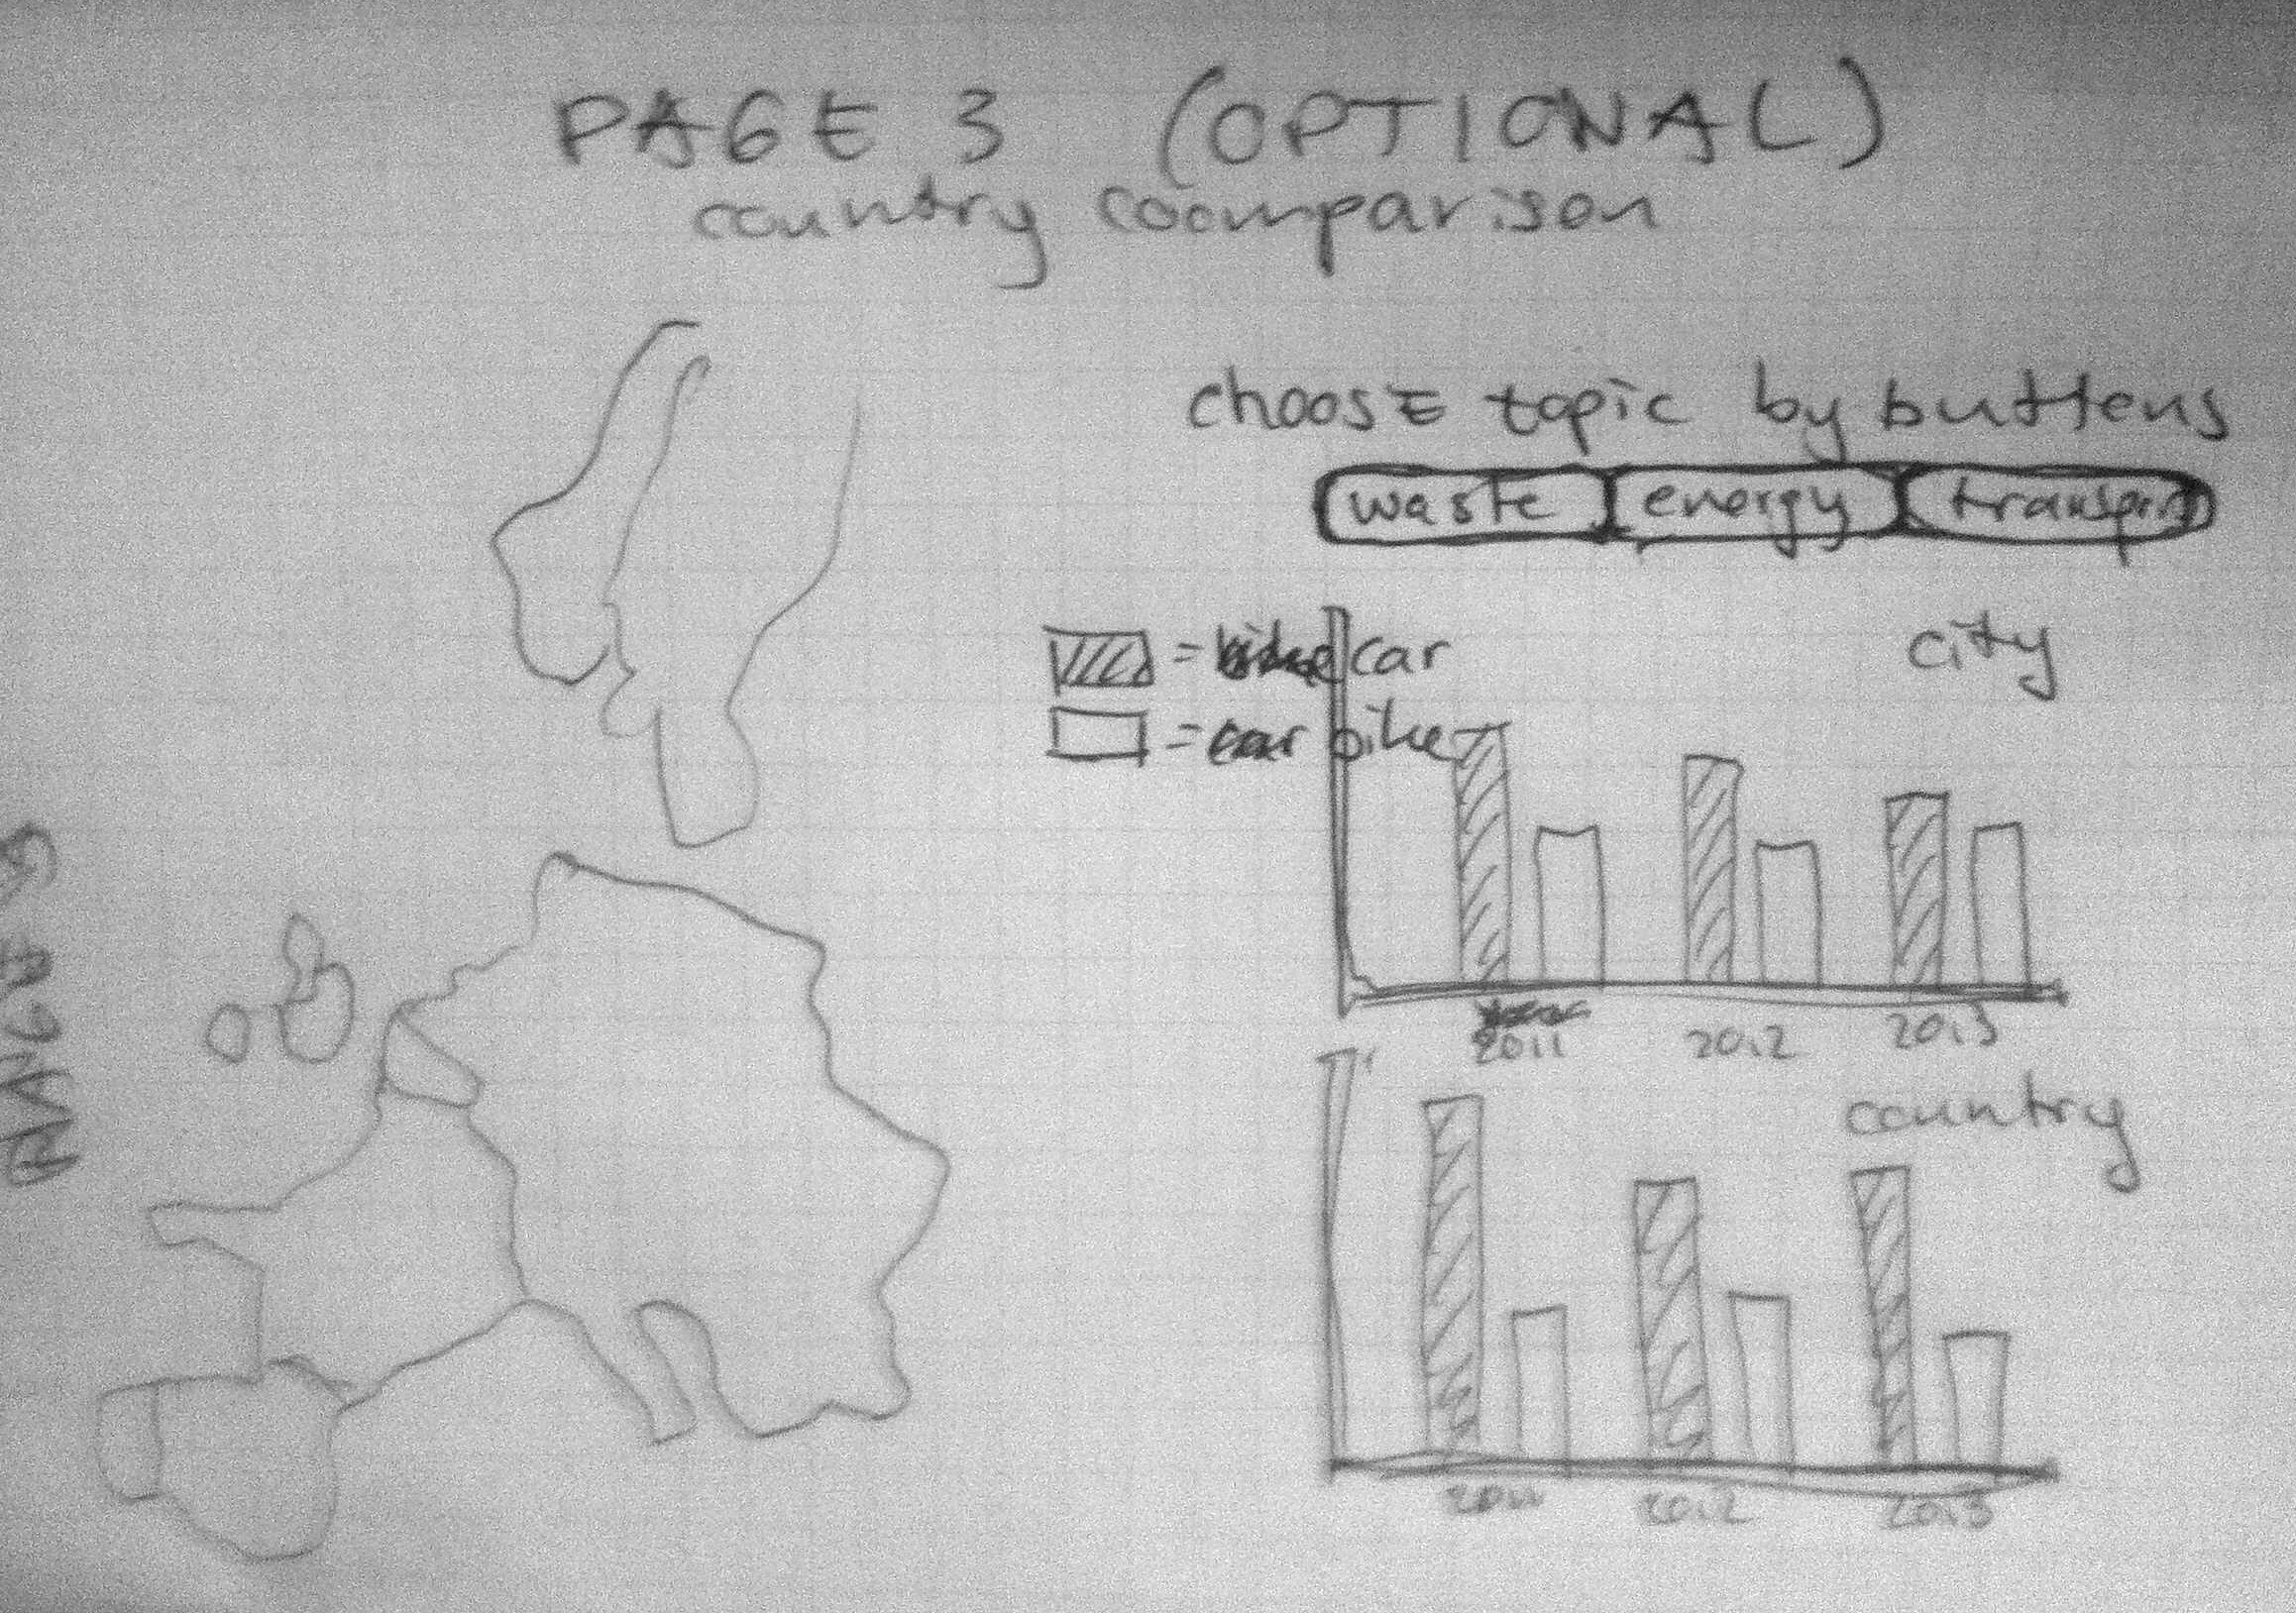 PAGE 3 (OPTIONAL)
country coomparison
choose topic by buttens
waste energy transport
= car
= bike
city
2011 2012 2013
country
2011 2012 2013